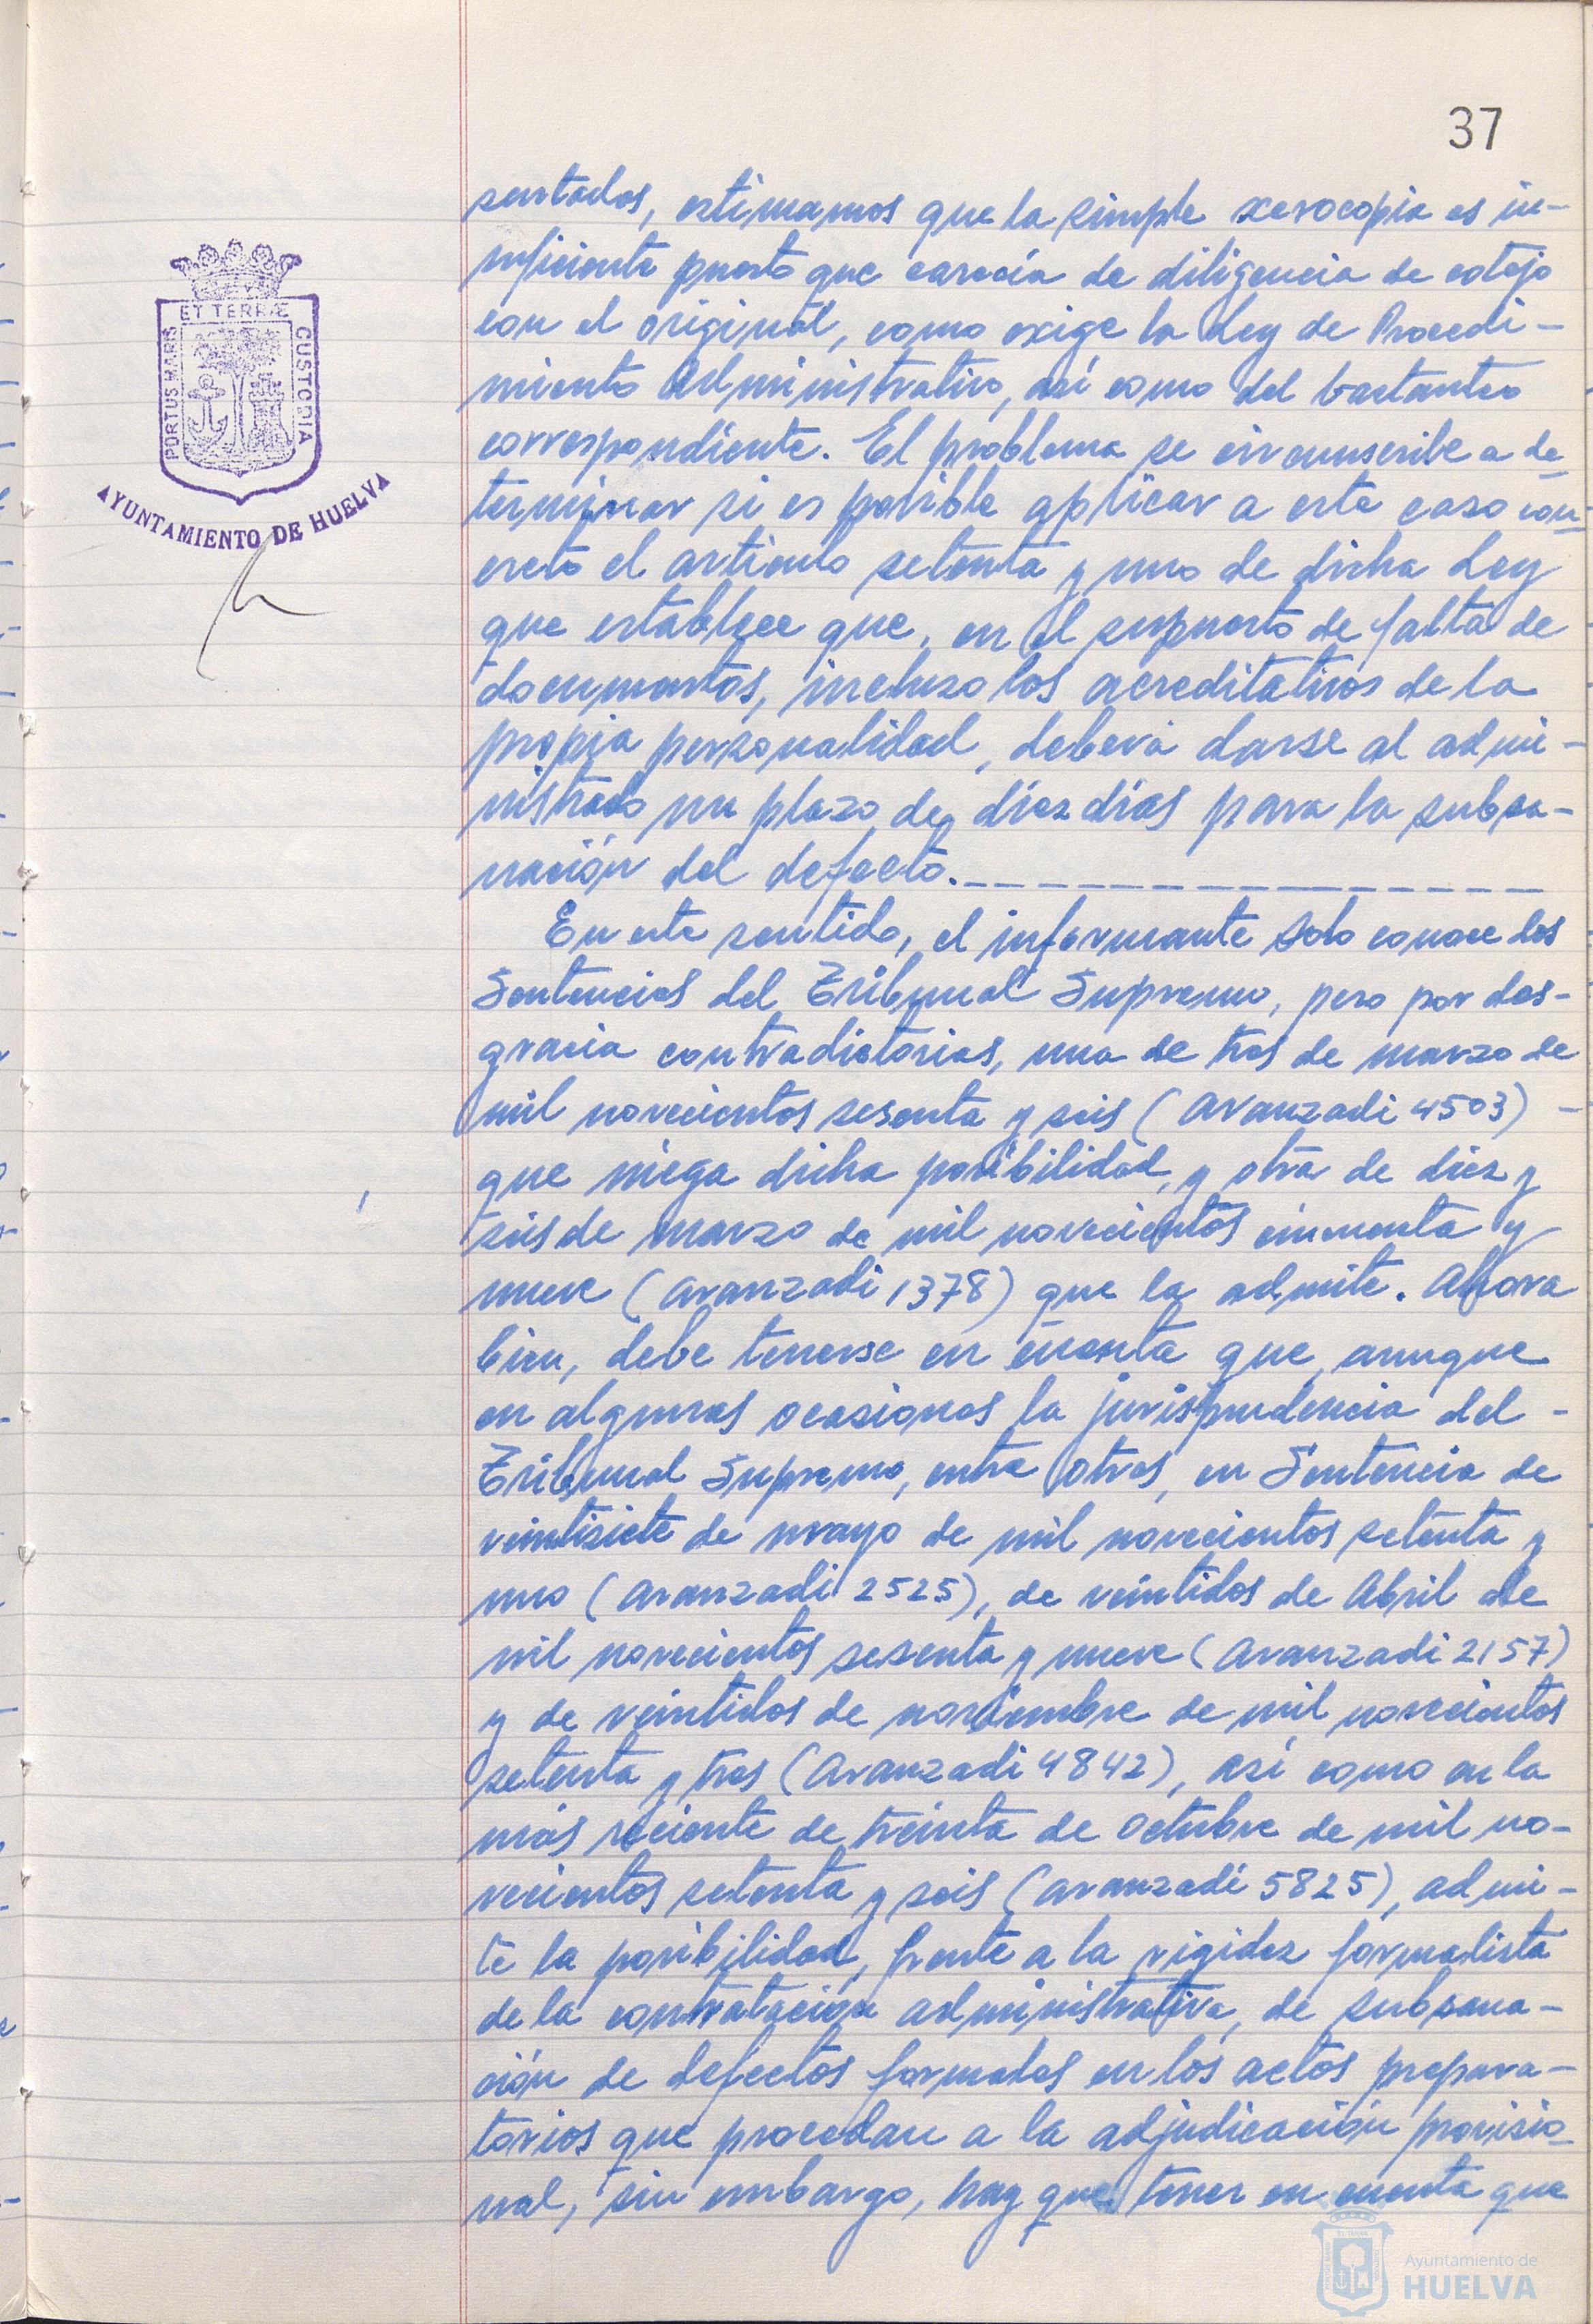 37
sentados, estimamos que la simple xerocopia es in-
suficiente puesto que carecía de diligencia de cotejo
con el original, como exige la Ley de Procedi-
miento Administrativo, así como del bastanteo
correspondiente. El problema se circunscribe a de
terminar si es posible aplicar a este caso con-
creto el artículo setenta y uno de dicha Ley
que establece que, en el supuesto de falta de
documentos, incluso los acreditativos de la
propia personalidad, deberá darse al admi-
nistrado un plazo de diez días para la subsa-
nación del defecto.
En este sentido, el informante solo conoce dos
Sentencias del Tribunal Supremo, pero por des-
gracia contradictorias, una de tres de marzo de
mil novecientos sesenta y seis (Aranzadi 4503) -
que niega dicha posibilidad, y otra de diez y
seis de marzo de mil novecientos cincuenta y
nueve (Aranzadi 1378) que la admite. Ahora
bien, debe tenerse en cuenta que, aunque
en algunas ocasiones la jurisprudencia del -
Tribunal Supremo, entre otras, en Sentencia de
veintisiete de mayo de mil novecientos setenta y
uno (Aranzadi 2525), de veintidos de Abril de
mil novecientos sesenta y nueve (Aranzadi 2157)
y de veintidos de noviembre de mil novecientos
setenta y tres (Aranzadi 4842), así como en la
más reciente de treinta de Octubre de mil no-
vecientos setenta y seis (Aranzadi 5825), admi-
te la posibilidad, frente a la rigidez formalista
de la contratación administrativa, de subsana-
ción de defectos formales en los actos prepara-
torios que procedan a la adjudicación provisio-
nal, sin embargo, hay que tener en cuenta que
PORTUS MARIS ET TERRÆ CUSTODIA
AYUNTAMIENTO DE HUELVA
Ayuntamiento de
HUELVA